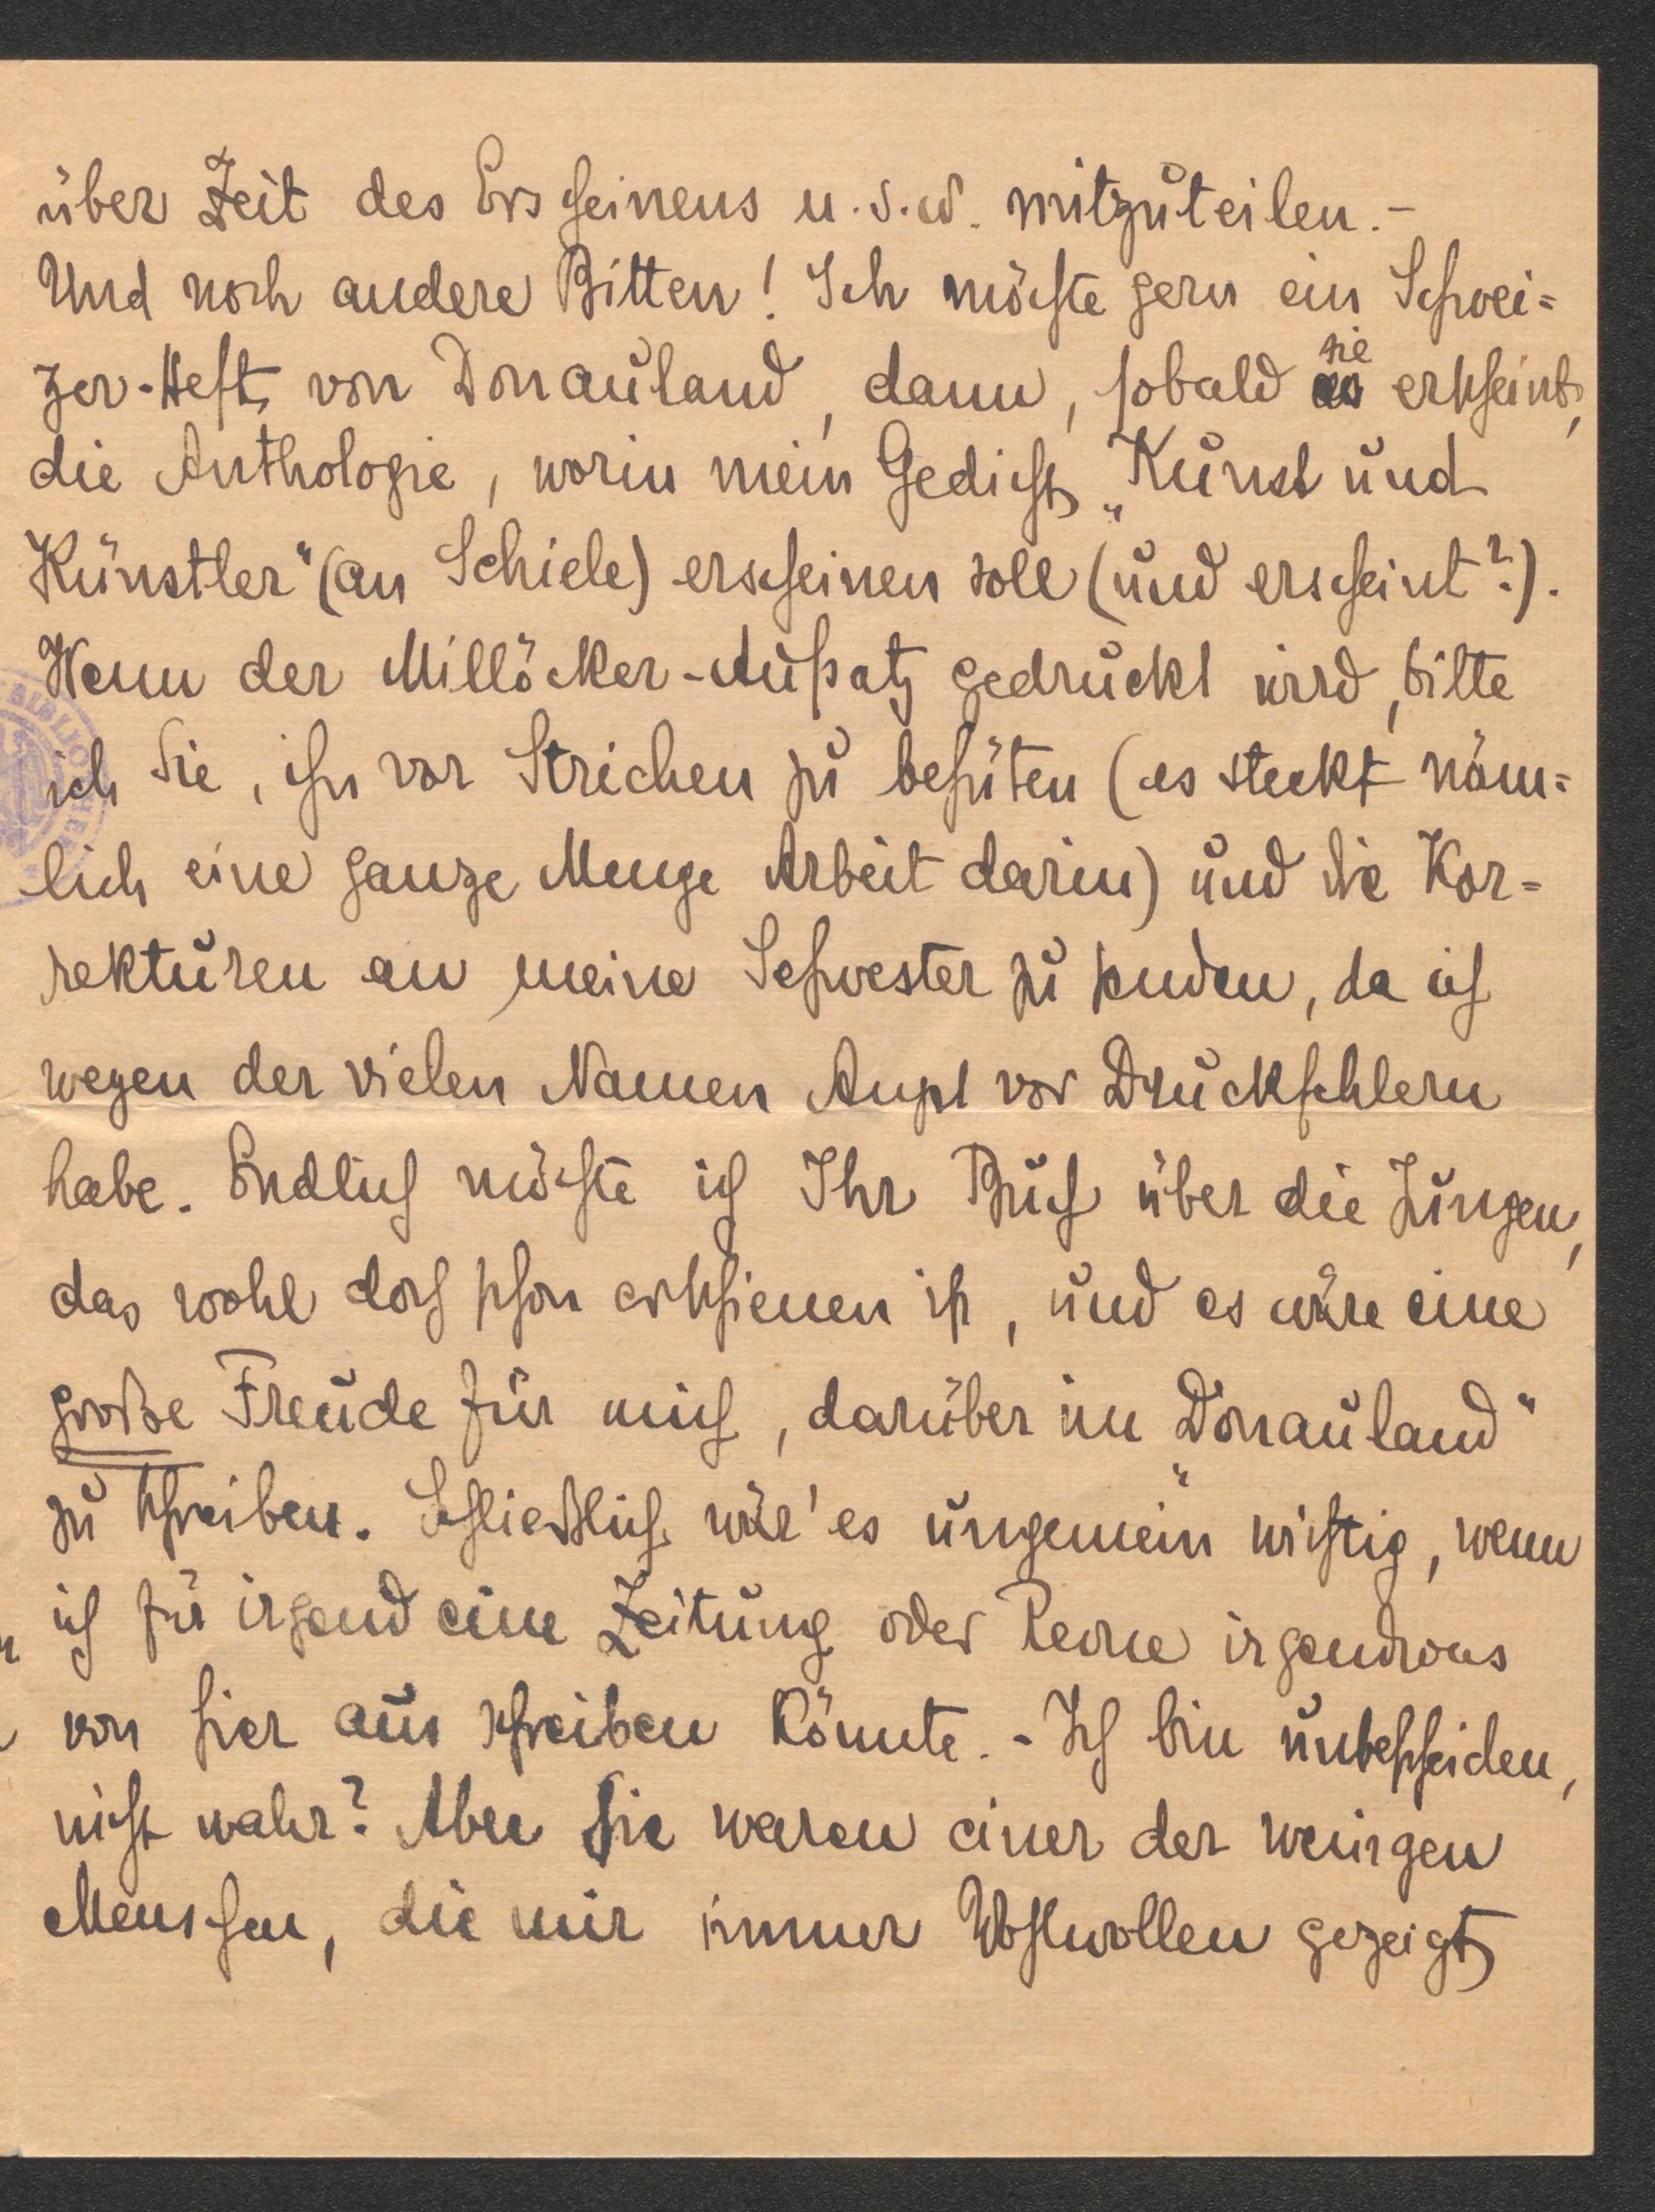 über Zeit des Erscheinens u.s.w. mitzuteilen. –
Und noch andere Bitten! Ich möchte gern ein Schwei=
zer-Heft von Donauland, dann, sobald sie erscheint,
die Anthologie, worin mein Gedicht „Kunst und
Künstler“ (an Schiele) erscheinen soll (und erscheint?).
Wenn der Millöcker-Aufsatz gedruckt wird, bitte
ich Sie, ihn vor Strichen zu behüten (es steckt näm=
lich eine ganze Menge Arbeit darin) und die Kor=
rekturen an meine Schwester zu senden, da ich
wegen der vielen Namen Angst vor Druckfehlern
habe. Endlich möchte ich Ihr Buch über die Jungen,
das wohl doch schon erschienen ist, und es wäre eine
große Freude für mich, darüber im „Donauland“
zu schreiben. Schließlich wär' es ungemein wichtig, wenn
ich für irgend eine Zeitung oder Revue irgendwas
von hier aus schreiben könnte. – Ich bin unbescheiden,
nicht wahr? Aber Sie waren einer der wenigen
Menschen, die mir immer Wohlwollen gezeigt